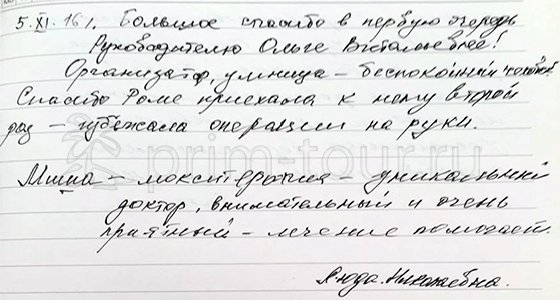 5.XI.16г. Большое спасибо в первую очередь
Руководителю Ольге Витальевне!
Организатор, умница – беспокойный человек
Спасибо Роме приехала к нему второй
раз – избежала операции на руки.
Миша – мокситерапия – уникальный
доктор, внимательный и очень
приятный – лечение помогает.
Люда Николаевна.
prim-tour.ru